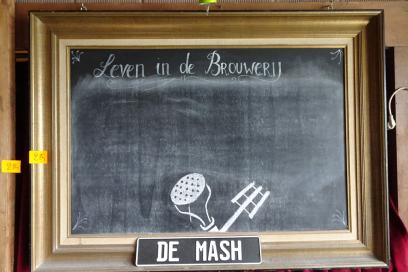 Leven in de Brouwerij
DE MASH